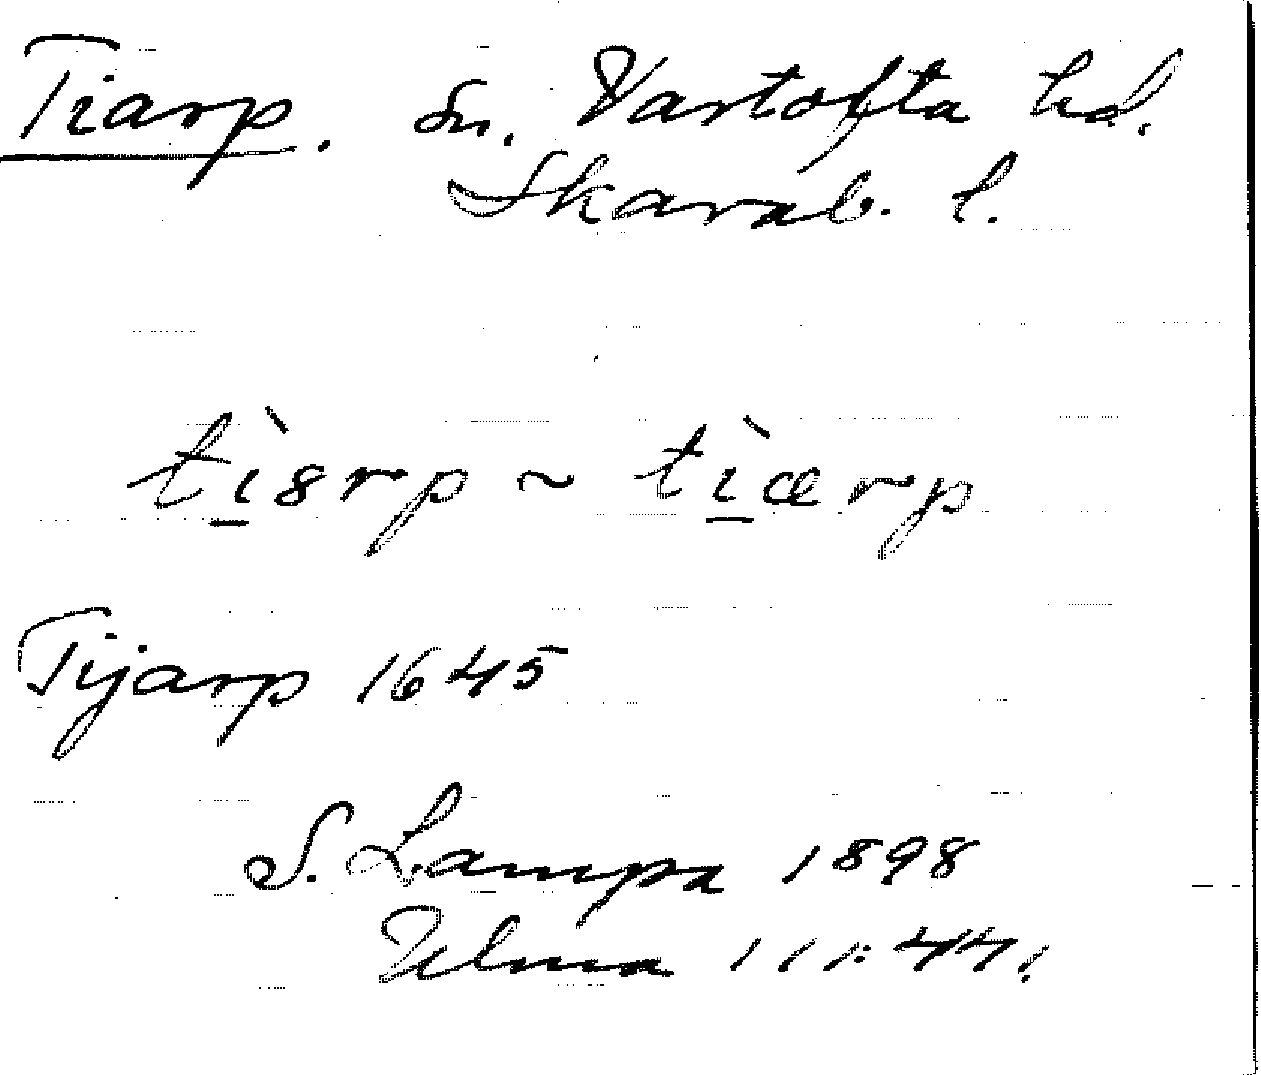 Tiarp. sn. Vartofta hd.
Skarab. l.
tı̱̀ɞrp ~ tı̱̀ærp
Tijarp 1645
S. Lampa 1898
Ulma 111:44.